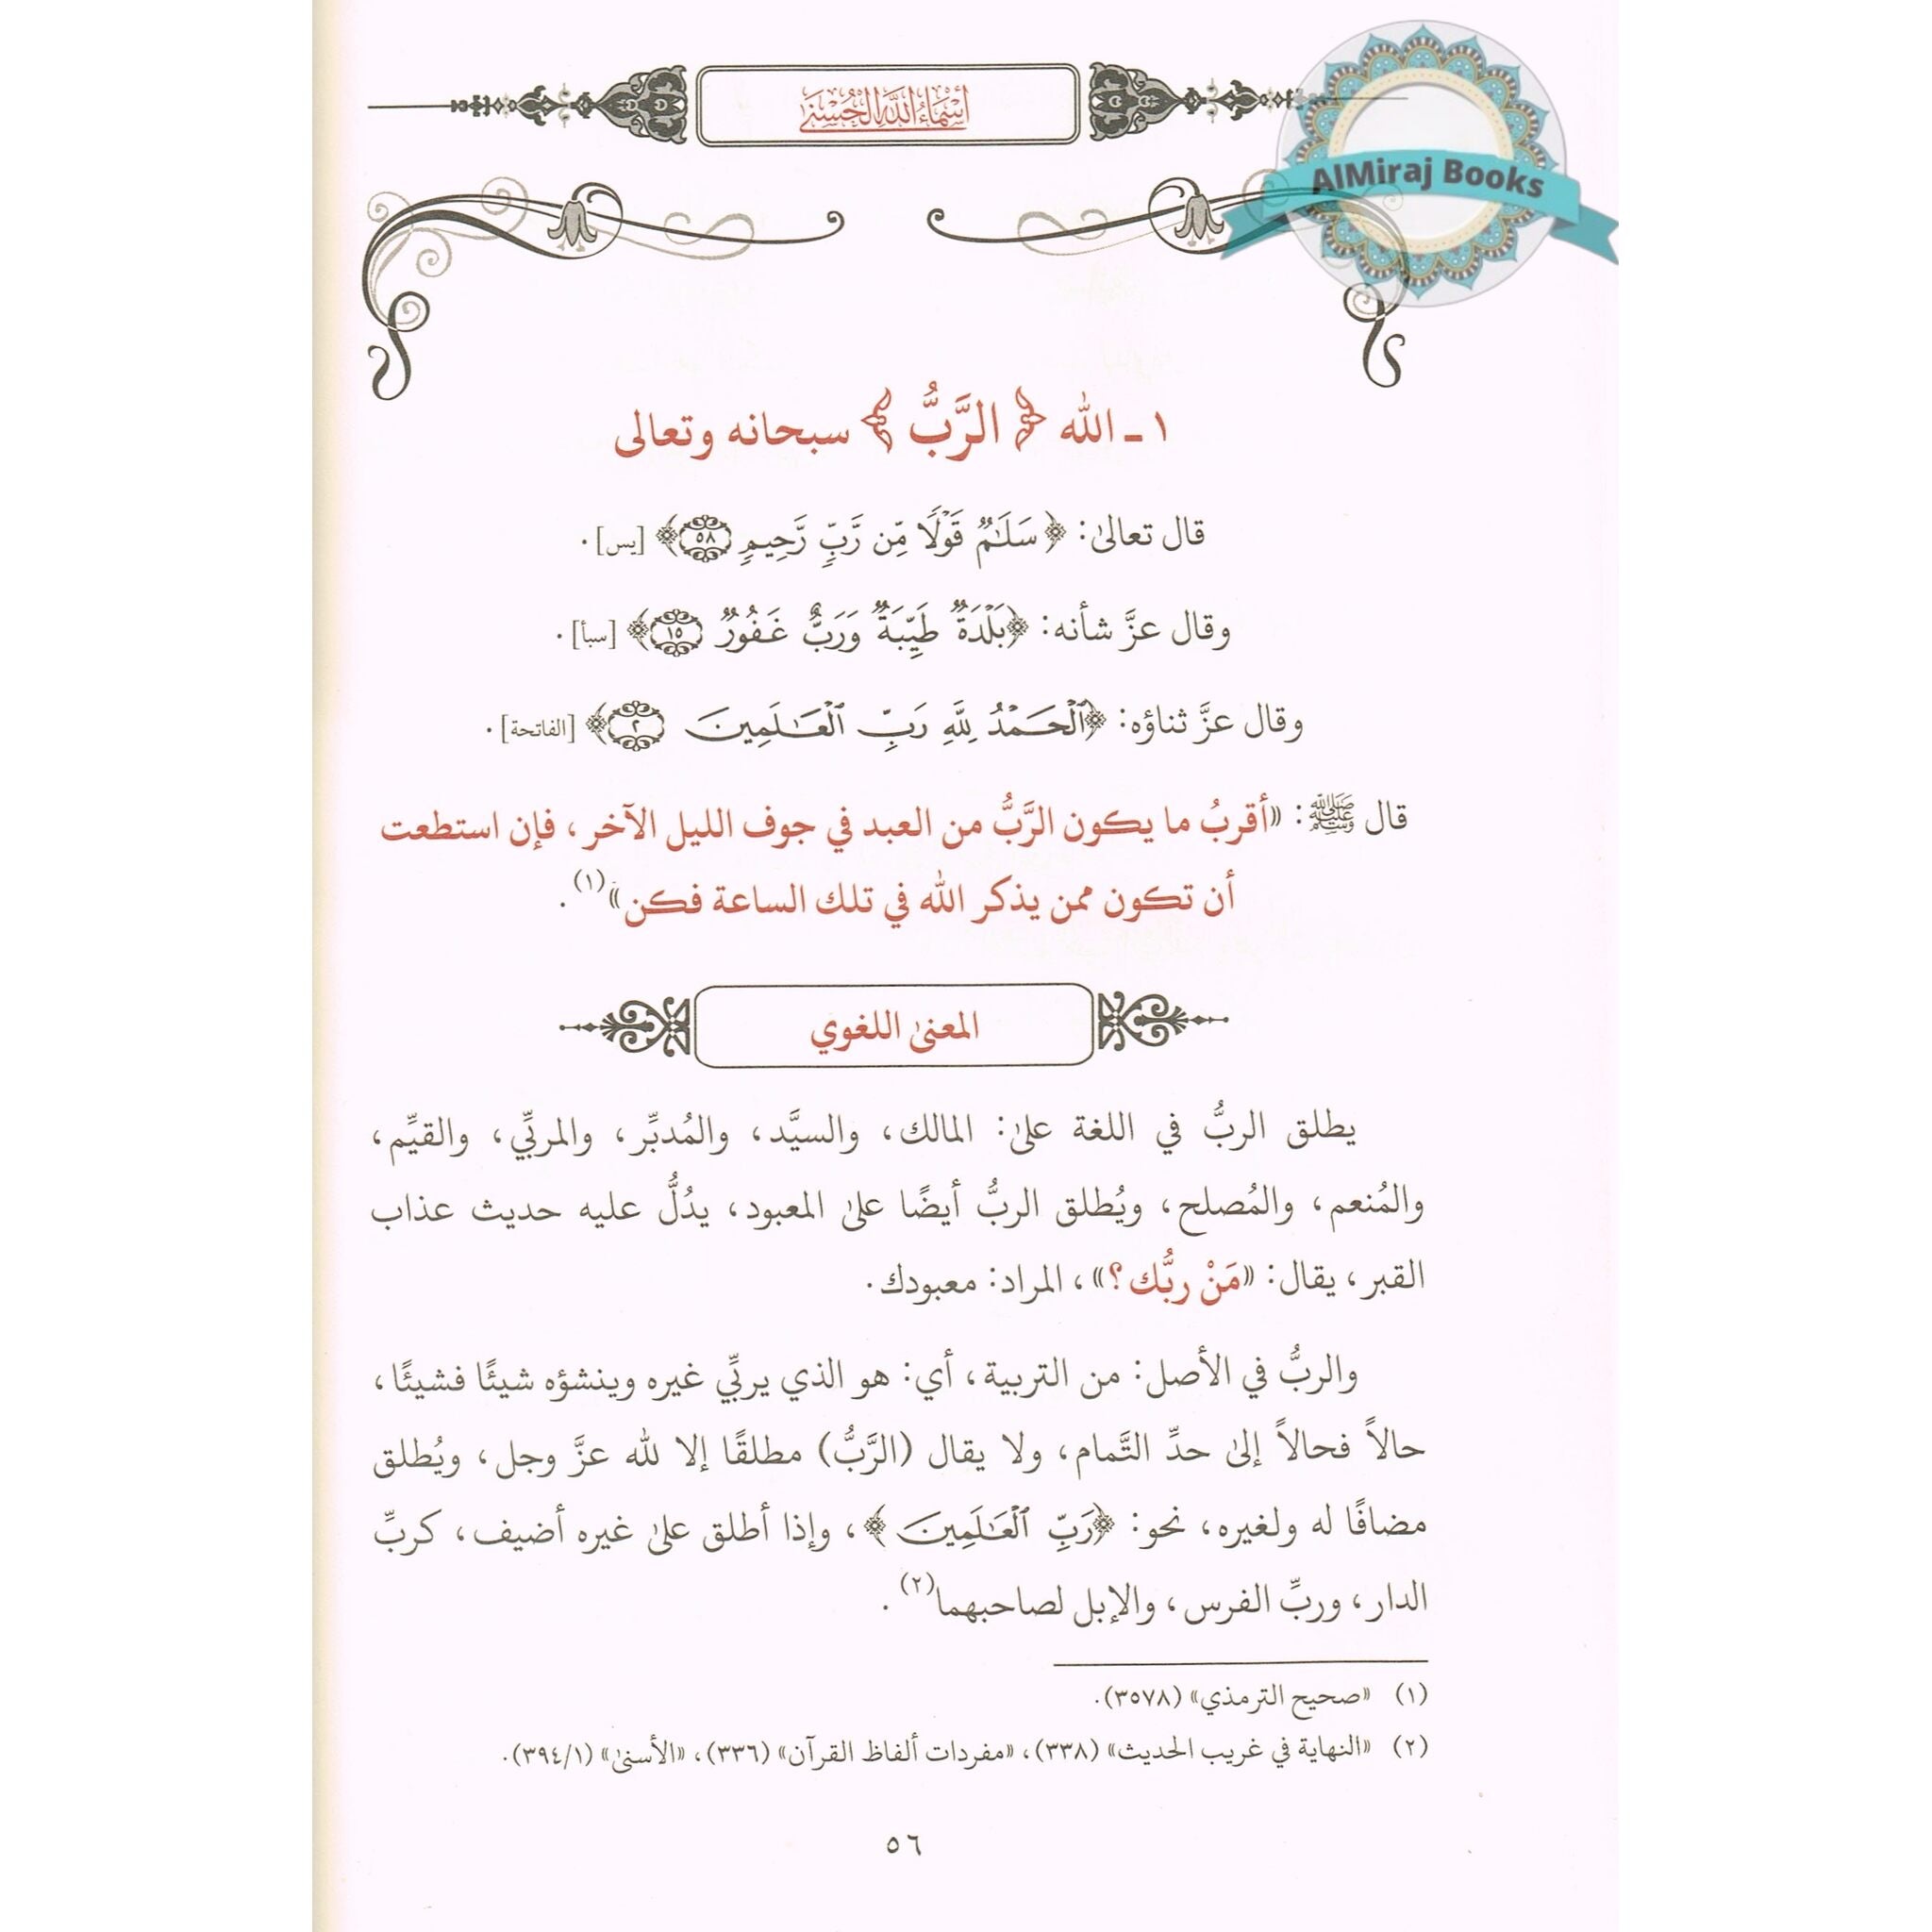 أسماء الله الحسنى
AlMiraj Books
١ ـ الله ﴿ الرَّبُّ ﴾ سبحانه وتعالى
قال تعالىٰ: ﴿سَلَٰمٌ قَوْلًا مِّن رَّبٍّ رَّحِيمٍ ٥٨﴾ [يس].
وقال عزَّ شأنه: ﴿بَلْدَةٌ طَيِّبَةٌ وَرَبٌّ غَفُورٌ ١٥﴾ [سبأ].
وقال عزَّ ثناؤه: ﴿ٱلْحَمْدُ لِلَّهِ رَبِّ ٱلْعَٰلَمِينَ ٢﴾ [الفاتحة].
قال ﷺ: «أقربُ ما يكون الرَّبُّ من العبد في جوف الليل الآخر، فإن استطعت
أن تكون ممن يذكر الله في تلك الساعة فكن»(١).
المعنىٰ اللغوي
يطلق الربُّ في اللغة علىٰ: المالك، والسيَّد، والمُدبِّر، والمربِّي، والقيِّم،
والمُنعم، والمُصلح، ويُطلق الربُّ أيضًا علىٰ المعبود، يدُلُّ عليه حديث عذاب
القبر، يقال: «مَنْ ربُّك؟»، المراد: معبودك.
والربُّ في الأصل: من التربية، أي: هو الذي يربِّي غيره وينشؤه شيئًا فشيئًا،
حالاً فحالاً إلىٰ حدِّ التَّمام، ولا يقال (الرَّبُّ) مطلقًا إلا لله عزَّ وجل، ويُطلق
مضافًا له ولغيره، نحو: ﴿رَبِّ ٱلْعَٰلَمِينَ﴾، وإذا أطلق علىٰ غيره أضيف، كربِّ
الدار، وربِّ الفرس، والإبل لصاحبهما(٢).
(١) «صحيح الترمذي» (٣٥٧٨).
(٢) «النهاية في غريب الحديث» (٣٣٨)، «مفردات ألفاظ القرآن» (٣٣٦)، «الأسنىٰ» (٣٩٤/١).
٥٦